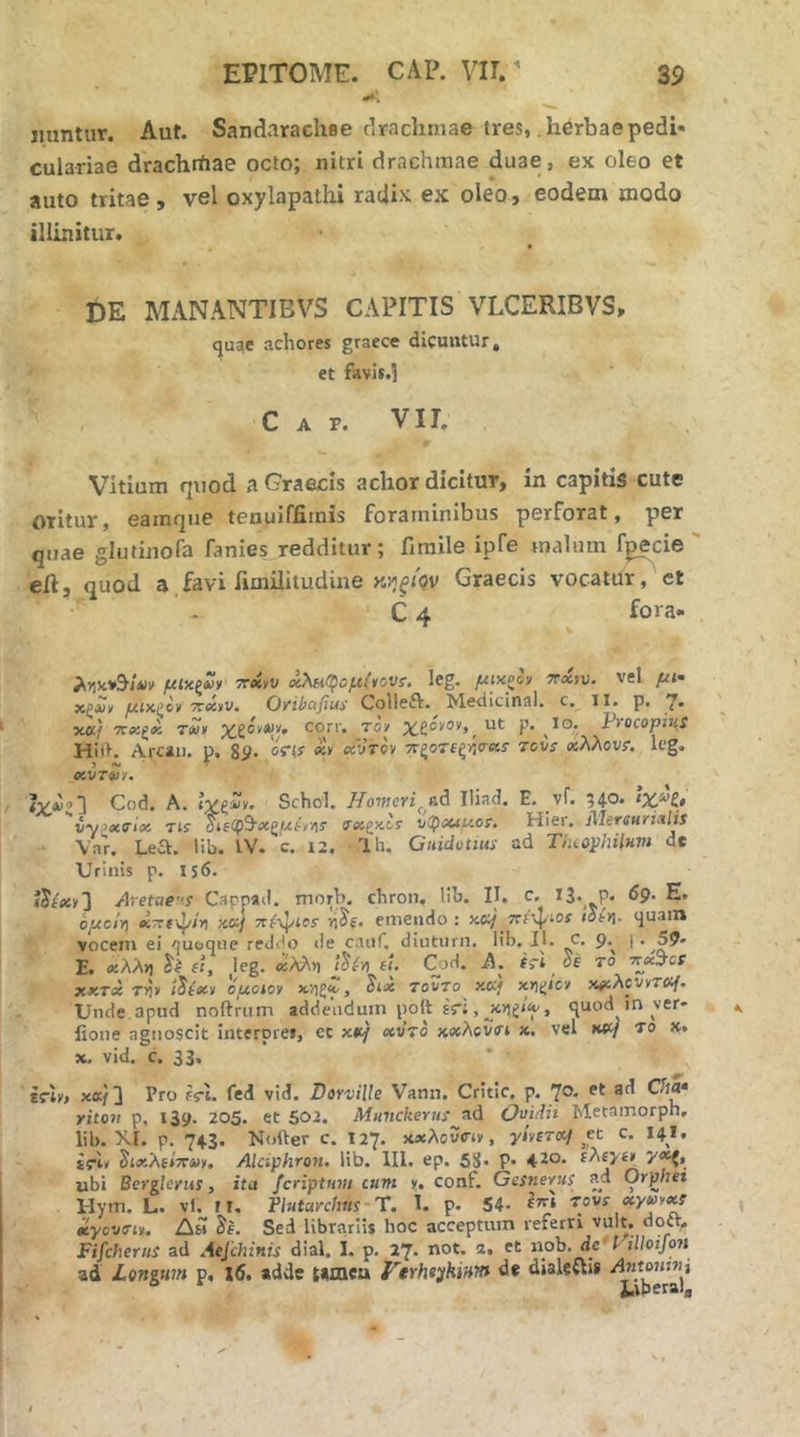 EPITOME. CAP. VII. 39
nuntur. Aut. Sandarachae drachmae tres, herbae pedi-
culariae drachmae octo; nitri drachmae duae, ex oleo et
auto tritae, vel oxylapathi radix ex oleo, eodem modo
illinitur.
DE MANANTIBVS CAPITIS VLCERIBVS,
quae achores graece dicuntur,
et favis.]
CAP. VII.
Vitium quod a Graecis achor dicitur, in capitis cute
oritur, eamque tenuiſſimis foraminibus perforat, per
quae glutinoſa ſanies redditur; ſimile ipſe malum ſpecie
eſt, quod a favi ſimilitudine κηρίον Graecis vocatur, et
C 4 fora-
ληκυθίων μικρῶν πάνυ ἀλειφομένους. leg. μικρὸν πάνυ. vel μι-
κρῶν μικρὸν πάνυ. Oribaſius Collect. Medicinal. c. II. p. 7.
καὶ παρὰ τῶν χρόνων, corr. τὸν χρόνον, ut p. 10. Procopius
Hiſt. Arcan. p. 89. ὅστις ἂν αὐτὸν προτερήσας τοὺς ἄλλους. leg.
αὐτῶν.
ἰχὼρ] Cod. A. ἰχρῶν. Schol. Homeri ad Iliad. E. vſ. 340. ἰχὼρ,
ὑγρασία τις διεφθαρμένης σαρκὸς ὕφαιμος. Hier. Mercurialis
Var. Lect. lib. IV. c. 12. Th. Guidotius ad Theophilum de
Urinis p. 156.
ἰδέαν] Aretaeus Cappad. morb. chron. lib. II. c. 13. p. 69. E.
ὁμοίη ἀπεψίη καὶ πέψιος ἠδε. emendo: καὶ πέψιος ἰδέη. quam
vocem ei quoque reddo de cauſ. diuturn. lib. II. c. 9. p. 59.
E. ἄλλη δὲ εἰ, leg. ἄλλη ἰδέη εἰ. Cod. A. ἐστὶ δὲ τὸ πάθος
κατὰ τὴν ἰδέαν ὅμοιον κηρῷ, διὰ τοῦτο καὶ κηρίον καλοῦνται.
Unde apud noſtrum addendum poſt ἐστὶ, κηρίῳ, quod in ver-
ſione agnoſcit interpres, et καὶ αὐτὸ καλοῦσι κ. vel καὶ τὸ κ.
κ. vid. c. 33.
ἐστὶν, καὶ] Pro ἐστὶ. ſed vid. Dorville Vann. Critic. p. 70. et ad Cha-
riton p. 139. 205. et 502. Munckerus ad Ovidii Metamorph.
lib. XI. p. 743. Noſter c. 127. καλοῦσιν, γίνεται et c. 141.
ἐστὶν διαλείπων. Alciphron. lib. III. ep. 58. p. 420. ἔλεγεν γὰρ,
ubi Berglerus, ita ſcriptum cum ν. conf. Gesnerus ad Orphei
Hym. L. vſ. 11. Plutarchus T. I. p. 54. ἐπὶ τοὺς ἀγῶνας
ἄγουσιν. Δεῖ δὲ. Sed librariis hoc acceptum referri vult. doct.
Fiſcherus ad Aeſchinis dial. I. p. 27. not. 2. et nob. de Villoiſon
ad Longum p. 16. adde tamen Verheykium de dialectis Antonini
Liberal.